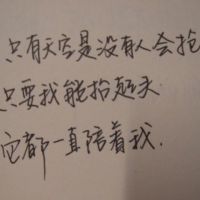 只有天空是没有人会抢
只要我能抬起头
它都一直陪着我.